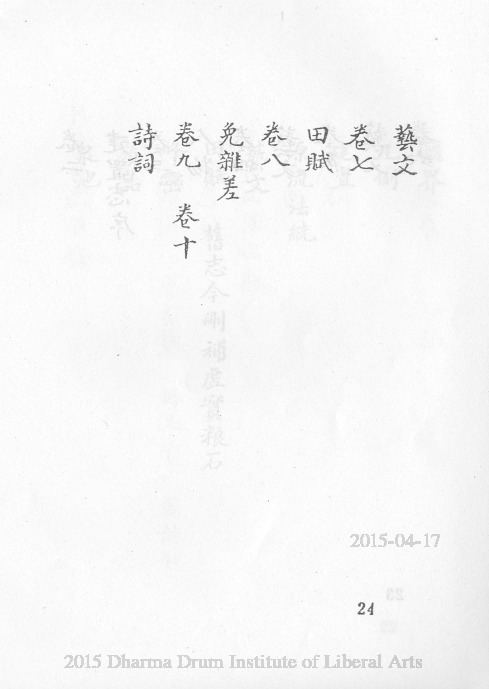 藝文
卷七
田賦
卷八
免雜差
卷九 卷十
詩詞
2015-04-17
24
2015 Dharma Drum Institute of Liberal Arts